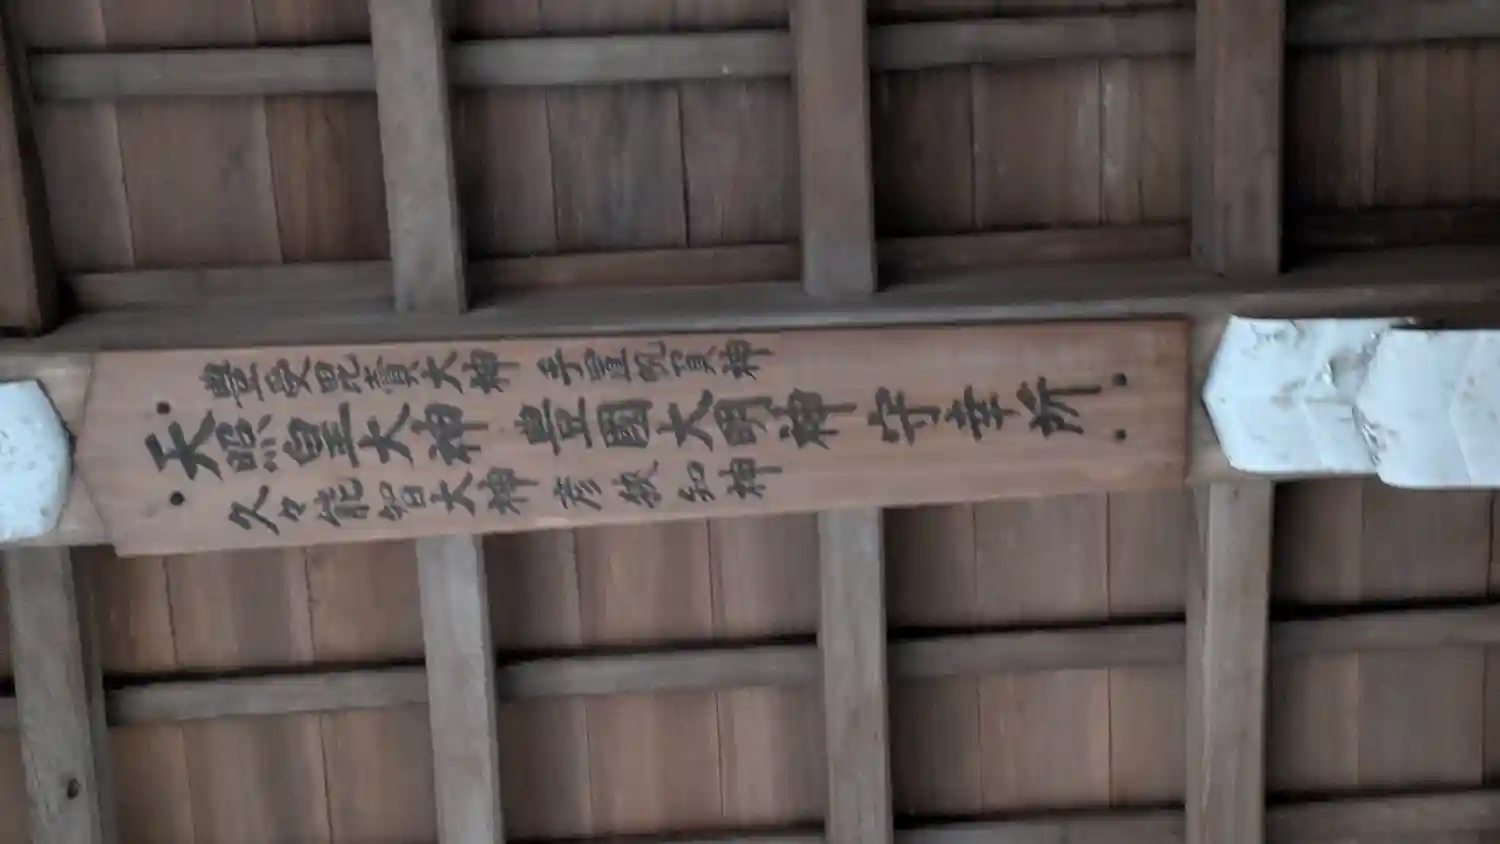 豊受毘賣大神 手置帆負神
天照皇大神 豊國大明神 守幸所
久々能智大神 彦狭知神